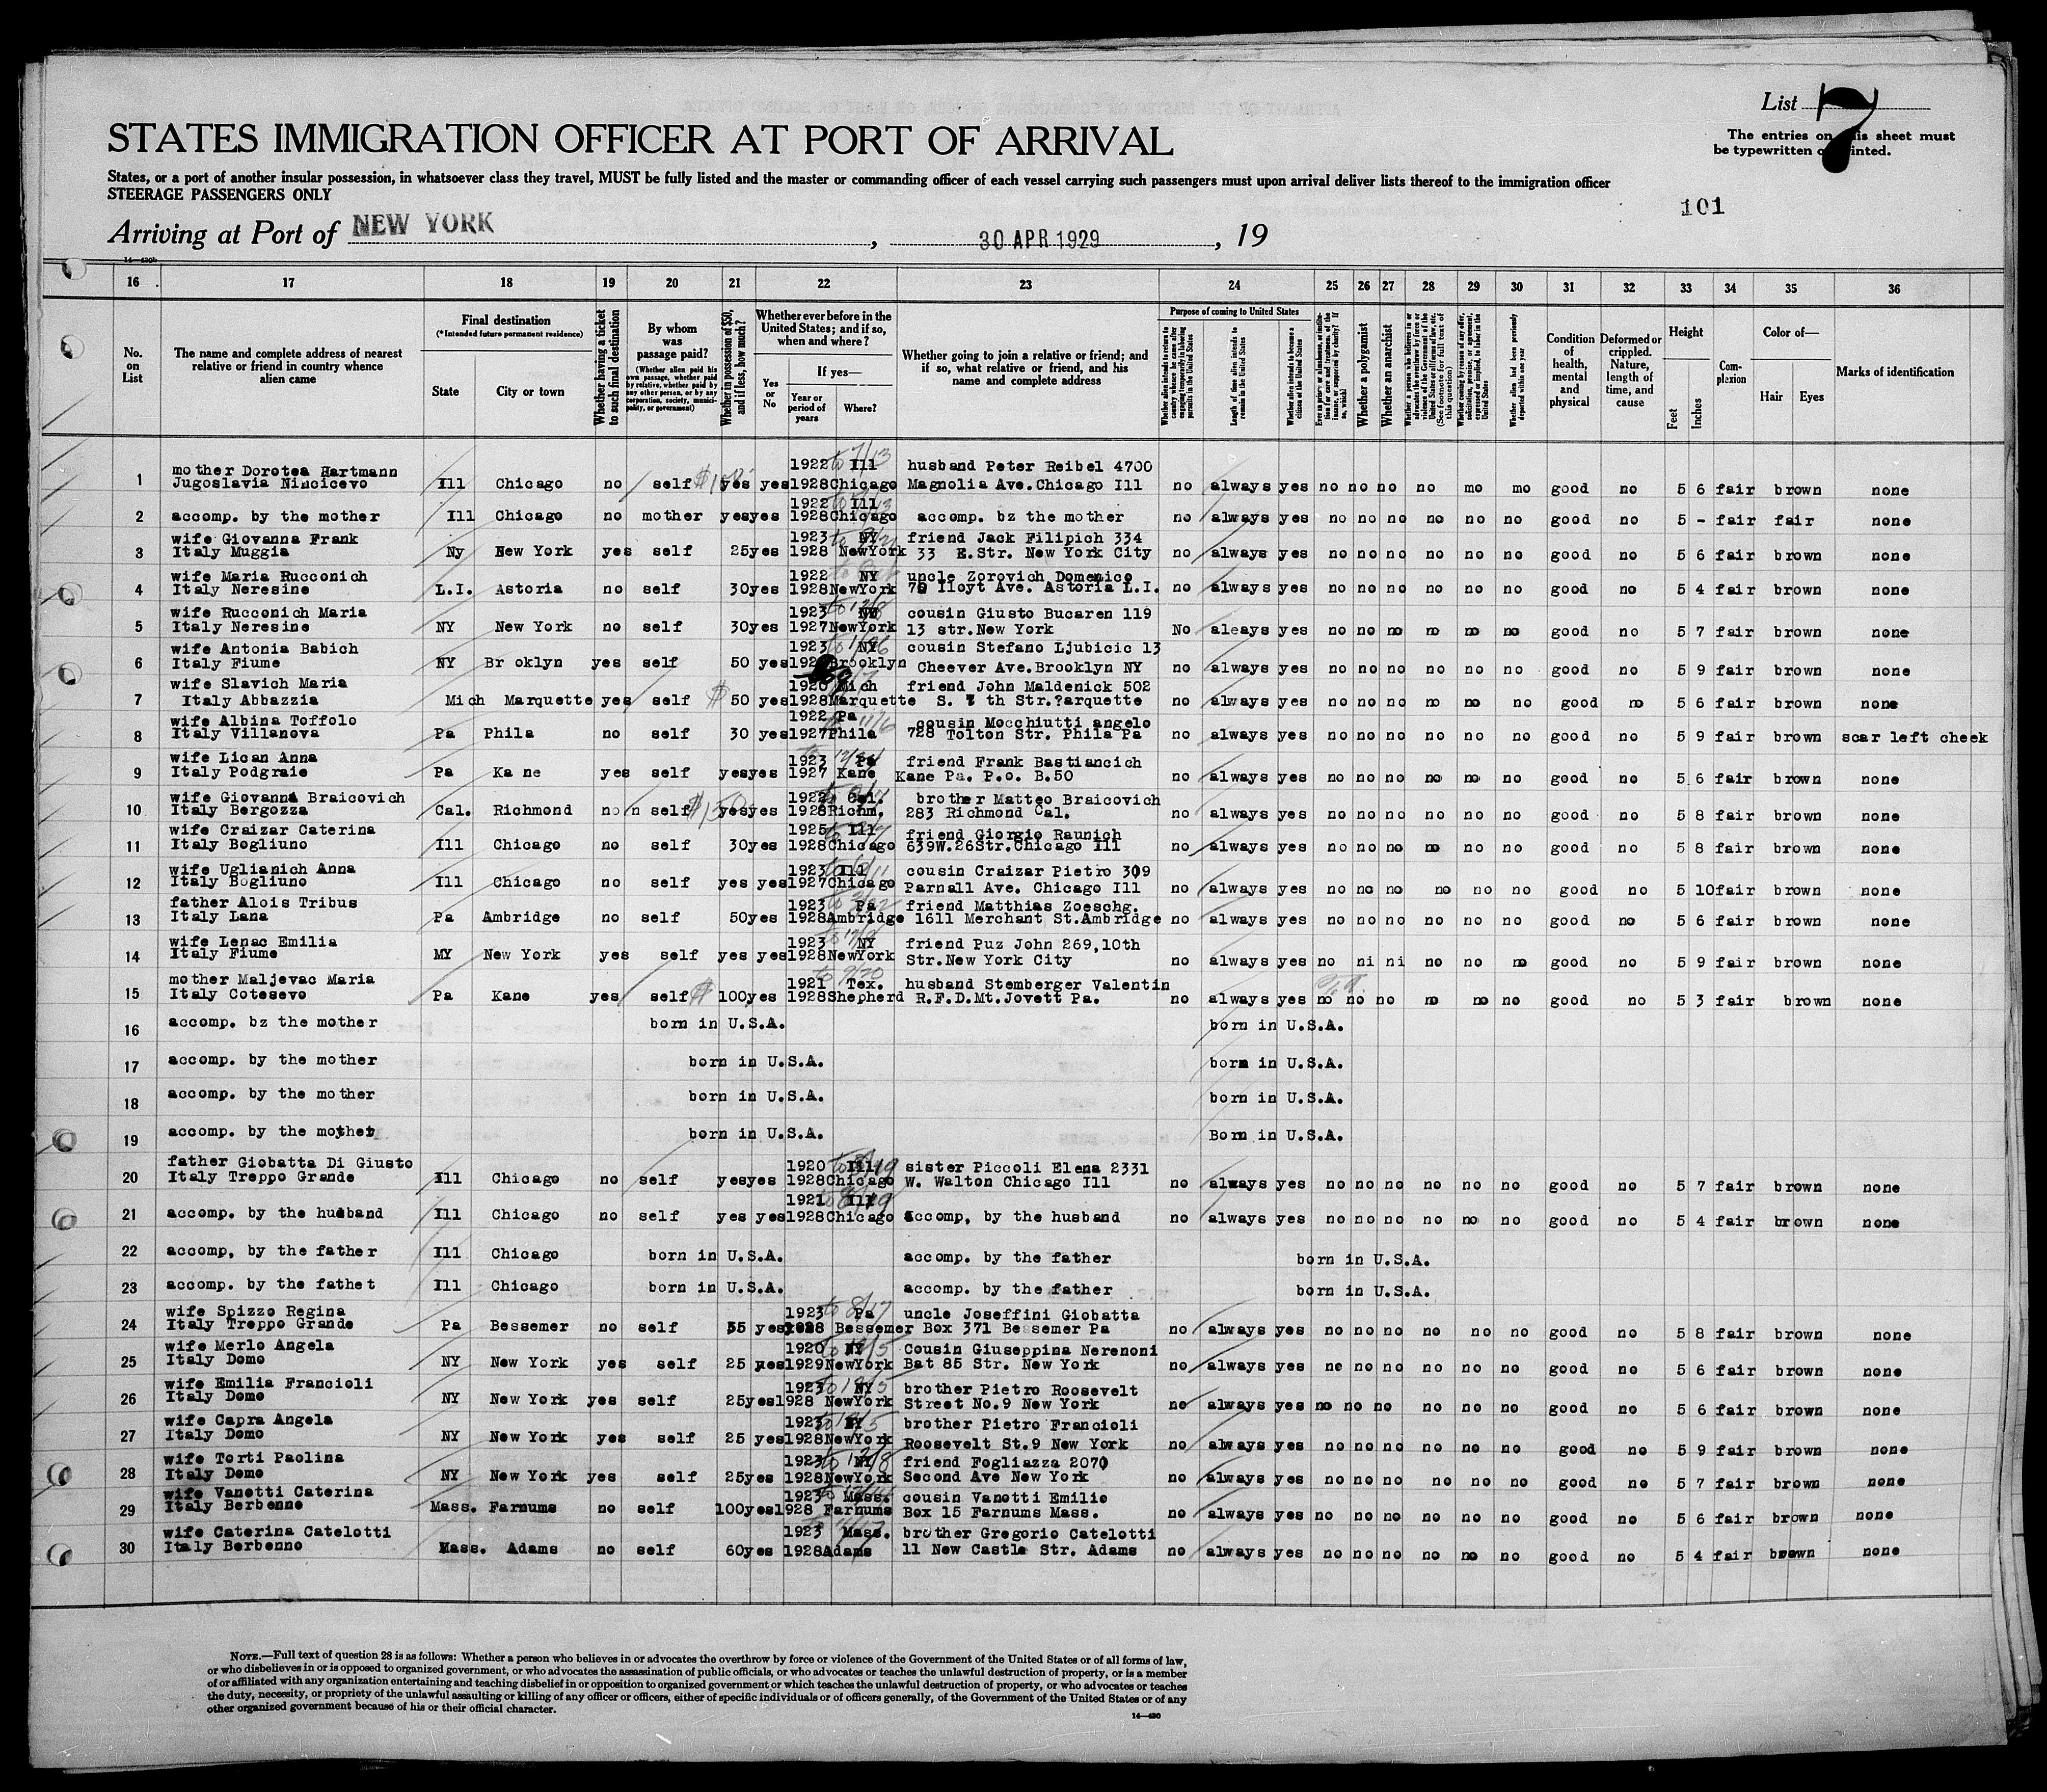 List 7
The entries on this sheet must
be typewritten or printed.
STATES IMMIGRATION OFFICER AT PORT OF ARRIVAL
States, or a port of another insular possession, in whatsoever class they travel, MUST be fully listed and the master or commanding officer of each vessel carrying such passengers must upon arrival deliver lists thereof to the immigration officer
STEERAGE PASSENGERS ONLY
101
Arriving at Port of NEW YORK , 30 APR 1929 , 19
16 17 18 19 20 21 22 23 24 25 26 27 28 29 30 31 32 33 34 35 36
No. on List
The name and complete address of nearest relative or friend in country whence alien came
Final destination
(*Intended future permanent residence)
State
City or town
Whether having a ticket to such final destination
By whom was passage paid?
(Whether alien paid his own passage, whether paid by relative, whether paid by any other person, or by any corporation, society, municipality, or government)
Whether in possession of $50, and if less, how much?
Whether ever before in the United States; and if so, when and where?
Yes or No
If yes—
Year or period of years
Where?
Whether going to join a relative or friend; and if so, what relative or friend, and his name and complete address
Purpose of coming to United States
Whether alien intends to return to country whence he came after engaging temporarily in laboring pursuits in the United States
Length of time alien intends to remain in the United States
Whether alien intends to become a citizen of the United States
Whether a polygamist
Whether an anarchist
Whether alien had been previously deported within one year
Condition of health, mental and physical
Deformed or crippled. Nature, length of time, and cause
Height
Feet
Inches
Complexion
Color of—
Hair
Eyes
Marks of identification
1 mother Dorotea Hartmann 1922 Ill husband Peter Reibel 4700
Jugoslavia Nincicevo Ill Chicago no self yes yes 1928 Chicago Magnolia Ave.Chicago Ill no always yes no no no no mo mo good no 5 6 fair brown none
1922 Ill
2 accomp. by the mother Ill Chicago no mother yes yes 1928 Chicago accomp. bz the mother no always yes no no no no no no good no 5 - fair fair none
3 wife Giovanna Frank 1923 NY friend Jack Filipich 334
Italy Muggia Ny New York yes self 25 yes 1928 NewYork 33 E.Str. New York City no always yes no no no no no no good no 5 6 fair brown none
4 wife Maria Rucconich 1922 NY uncle Zorovich Domenico
Italy Neresine L.I. Astoria no self 30 yes 1928 NewYork Hoyt Ave. Astoria L.I. no always yes no no no no no no good no 5 4 fair brown none
5 wife Rucconich Maria 1923 NY cousin Giusto Bucaren 119
Italy Neresine NY New York no self 30 yes 1927 NewYork 13 str.New York No aleays yes no no no no no no good no 5 7 fair brown none
6 wife Antonia Babich 1923 NY cousin Stefano Ljubicic 13
Italy Fiume NY Br oklyn yes self 50 yes Brooklyn Cheever Ave.Brooklyn NY no always yes no no no no no no good no 5 9 fair brown none
7 wife Slavich Maria 1920 Mich friend John Maldenick 502
Italy Abbazzia Mich Marquette yes self $ 50 yes 1928 Marquette S. 7 th Str.?arquette no always yes no no no no no no good no 5 6 fair brown none
8 wife Albina Toffolo 1922 Pa cousin Mocchiutti angelo
Italy Villanova Pa Phila no self 30 yes 1927 Phila 728 Tolton Str. Phila Pa no always yes no no no no no no good no 5 9 fair brown scar left cheek
9 wife Lican Anna 1923 Pa friend Frank Bastiancich
Italy Podgraie Pa Ka ne yes self yes yes 1927 Kane Kane Pa. P.o. B.50 no always yes no no no no no no good no 5 6 fair brown none
10 wife Giovanna Braicovich 1922 Cal. brother Matteo Braicovich
Italy Bergozza Cal. Richmond no n self $150 yes yes 1928 Richm. 283 Richmond Cal. no always yes no no no no no no good no 5 8 fair brown none
11 wife Craizar Caterina 1925 Ill friend Giorgio Raunich
Italy Bogliuno Ill Chicago no self 30 yes 1928 Chicago 639W.26Str.Chicago Ill no always yes no no no no no no good no 5 8 fair brown none
12 wife Uglianich Anna 1923 Ill cousin Craizar Pietro 309
Italy Bogliuno Ill Chicago no self yes yes 1927 Chicago Parnall Ave. Chicago Ill no always yes no no no no no no good no 5 10 fair brown none
13 father Alois Tribus 1923 Pa friend Matthias Zoeschg.
Italy Lana Pa Ambridge no self 50 yes 1928 Ambridge 1611 Merchant St.Ambridge no always yes no no no no no no good no 5 6 fair brown none
14 wife Lenac Emilia 1923 NY friend Puz John 269,10th
Italy Fiume MY New York yes self yes yes 1928 NewYork Str.New York City no always yes no ni ni no no no good no 5 9 fair brown none
15 mother Maljevac Maria 1921 Tex. husband Stemberger Valentin
Italy Cotesevo Pa Kane yes self $ 100 yes 1928 Shepherd R.F.D.Mt.Jovett Pa. no always yes no no no no no no good no 5 3 fair brown none
16 accomp. bz the mother born in U.S.A. born in U.S.A.
17 accomp. by the mother born in U.S.A. born in U.S.A.
18 accomp. by the mother born in U.S.A. born in U.S.A.
19 accomp. by the mother born in U.S.A. Born in U.S.A.
20 father Giobatta Di Giusto 1920 Ill sister Piccoli Elena 2331
Italy Treppo Grande Ill Chicago no self yes yes 1928 Chicago W. Walton Chicago Ill no always yes no no no no no no good no 5 7 fair brown none
1921 Ill
21 accomp. by the husband Ill Chicago no self yes yes 1928 Chicago accomp, by the husband no always yes no no no no no no good no 5 4 fair brown none
22 accomp, by the father Ill Chicago born in U.S.A. accomp. by the father born in U.S.A.
23 accomp. by the fathet Ill Chicago born in U.S.A. accomp. by the father born in U.S.A.
24 wife Spizzo Regina 1923 Pa uncle Joseffini Giobatta
Italy Treppo Grande Pa Bessemer no self 35 yes 1928 Bessemer Box 371 Bessemer Pa no always yes no no no no no no good no 5 8 fair brown none
25 wife Merlo Angela 1920 NY Cousin Giuseppina Nerenoni
Italy Domo NY New York yes self 25 yes 1929 NewYork Bat 85 Str. New York no always yes no no no no no no good no 5 6 fair brown none
26 wife Emilia Francioli 1923 NY brother Pietro Roosevelt
Italy Domo NY New York yes self 25 yes 1928 NewYork Street No.9 New York no always yes no no no no no no good no 5 6 fair brown none
27 wife Capra Angela 1923 NY brother Pietro Francioli
Italy Domo NY New York yes self 25 yes 1928 NewYork Roosevelt St.9 New York no always yes no no no no no no good no 5 9 fair brown none
28 wife Torti Paolina 1923 NY friend Fogliazza 2070
Italy Domo NY New York yes self 25 yes 1928 NewYork Second Ave New York no always yes no no no no no no good no 5 7 fair brown none
29 wife Vanetti Caterina 1923 Mass. cousin Vanotti Emilio
Italy Berbenno Mass. Farnums no self 100 yes 1928 Farnums Box 15 Farnums Mass. no always yes no no no no no no good no 5 6 fair brown none
30 wife Caterina Catelotti 1923 Mass. brother Gregorio Catelotti
Italy Berbenno Mass. Adams no self 60 yes 1928 Adams 11 New Castle Str. Adams no always yes no no no no no no good no 5 4 fair brown none
NOTE.—Full text of question 28 is as follows: Whether a person who believes in or advocates the overthrow by force or violence of the Government of the United States or of all forms of law,
or who disbelieves in or is opposed to organized government, or who advocates the assassination of public officials, or who advocates or teaches the unlawful destruction of property, or is a member
of or affiliated with any organization entertaining and teaching disbelief in or opposition to organized government or which teaches the unlawful destruction of property, or who advocates or teaches
the duty, necessity, or propriety of the unlawful assaulting or killing of any officer or officers, either of specific individuals or of officers generally, of the Government of the United States or of any
other organized government because of his or their official character.
14—430